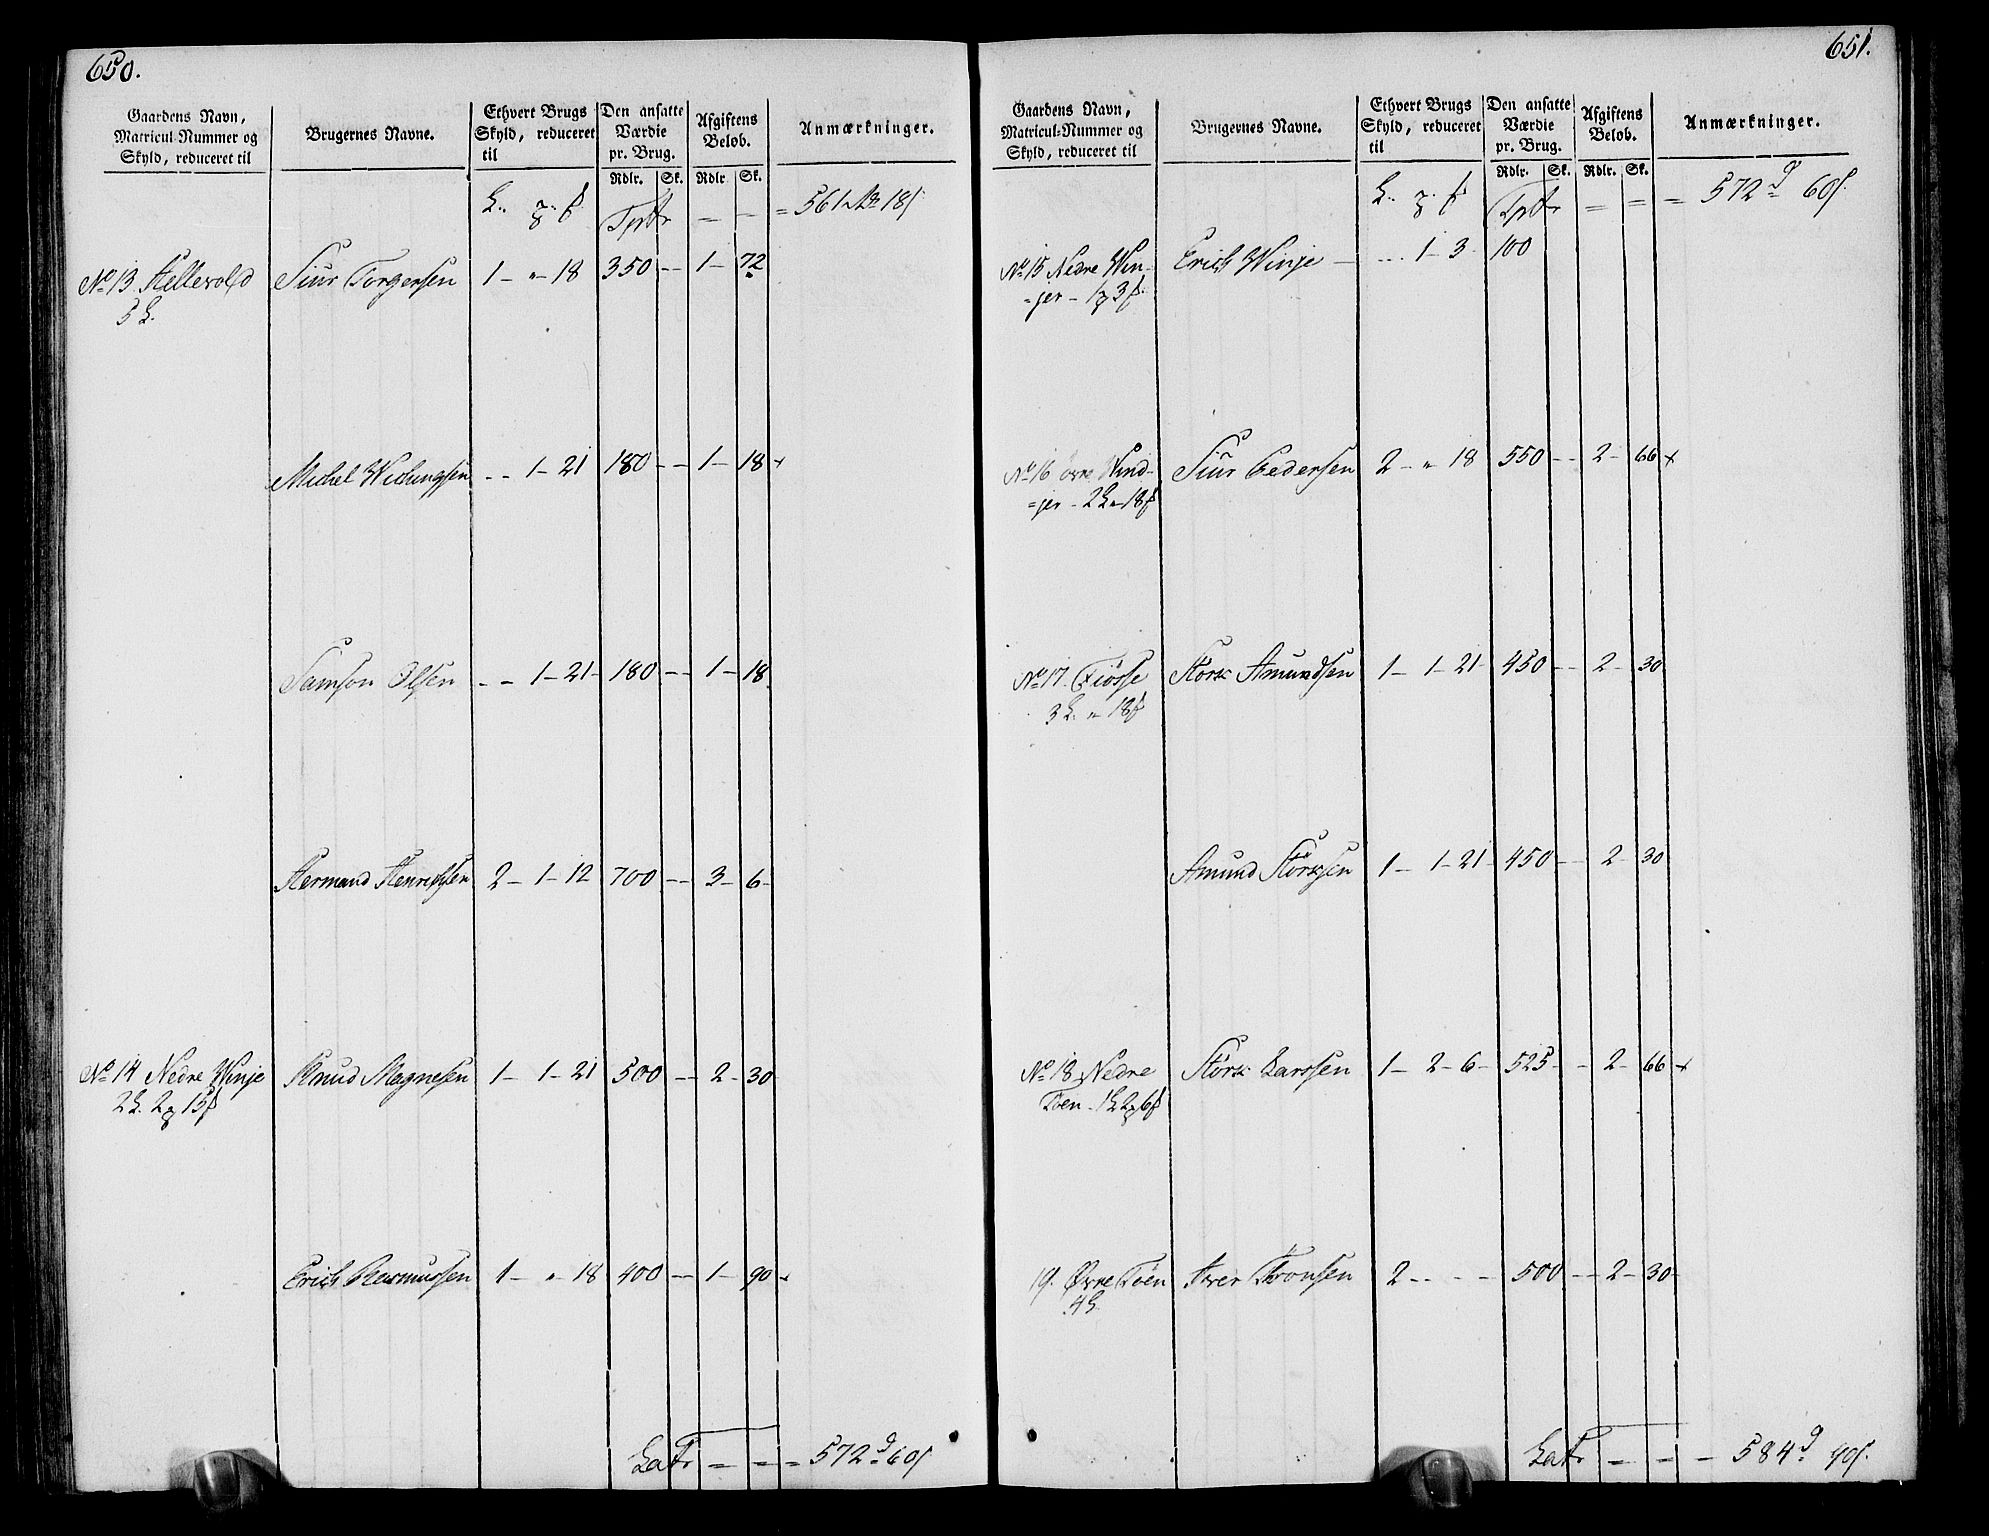 650.
Gaardens Navn, Matricul-Nummer og Skyld, reduceret til
Brugernes Navne.
Ethvert Brugs Skyld, reduceret til
Den ansatte Værdie pr. Brug.
Afgiftens Beløb.
Anmærkninger.
Rdlr. Sk. Rdlr Sk.
Tptr = = = 561 18
No 13 Hellevold Siur Torgersen 1 - " - 18 350 - - 1 - 72
5
Michel Wichingsen - - 1 - 21 180 - - 1 - 18
Samson Olsen - - 1 - 21 - 180 - - 1 - 18
Hermand Henrichsen 2 - 1 - 12 700 - - 3 - 6 -
No 14 Nedre Winje Knud Magnesen 1 - 1 - 21 500 - - 2 - 30
2 2 15
Erich Rasmussen 1 - " - 18 400 - - 1 - 90
Latr = = = 572 60
651.
Gaardens Navn, Matricul-Nummer og Skyld, reduceret til
Brugernes Navne.
Ethvert Brugs Skyld, reduceret til
Den ansatte Værdie pr. Brug.
Afgiftens Beløb.
Anmærkninger.
Rdlr. Sk. Rdlr. Sk.
Tptr = = = 572 60
No 15 Nedre Win- Erich Winje - ... 1 - 3 100
=jer - 1 3
No 16 øvre Wind- Siur Pedersen 2 - " 18 550 - - 2 - 66
=jer - 2 - 18
No 17 Fiøsse Størk Amundsen 1 - 1 - 21 - 450 - - 2 - 30
3 " 18
Amund Størksen 1 - 1 - 21 - 450 - - 2 - 30
No 18 Nedre Størk Larssen 1 - 2 - 6 - 525 - - 2 - 66
Tøen - 1 2 6
19. Øvre Tøen Iver Tronsen 2 - - - - 500 - - 2 - 30 -
4
Latr = = = 584 90